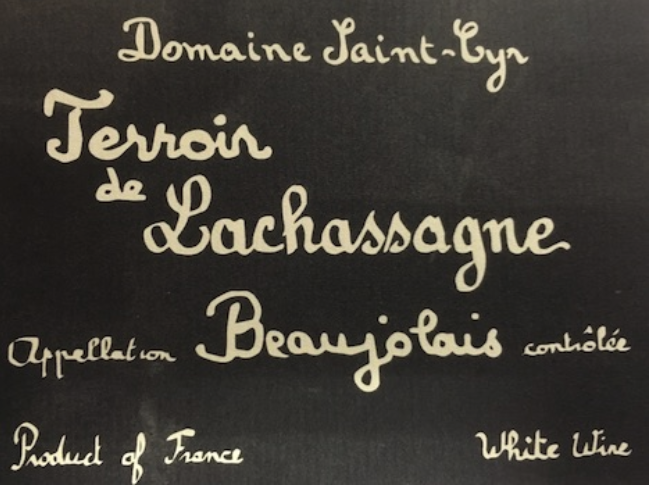 Domaine Saint-Cyr
Terroir
de Lachassagne
Appellation Beaujolais contrôlée
Product of France White Wine